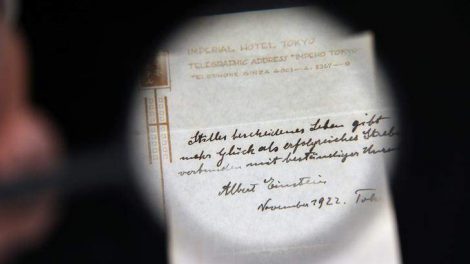 IMPERIAL HOTEL, TOKYO
TELEGRAPHIC ADDRESS "IMPEHO TOKYO
TELEPHONE GINZA
Stilles bescheidenes Leben gibt
mehr Glück als erfolgreiches Streb
verbunden mit beständiger Unru
Albert Einstein
November 1922. Tok